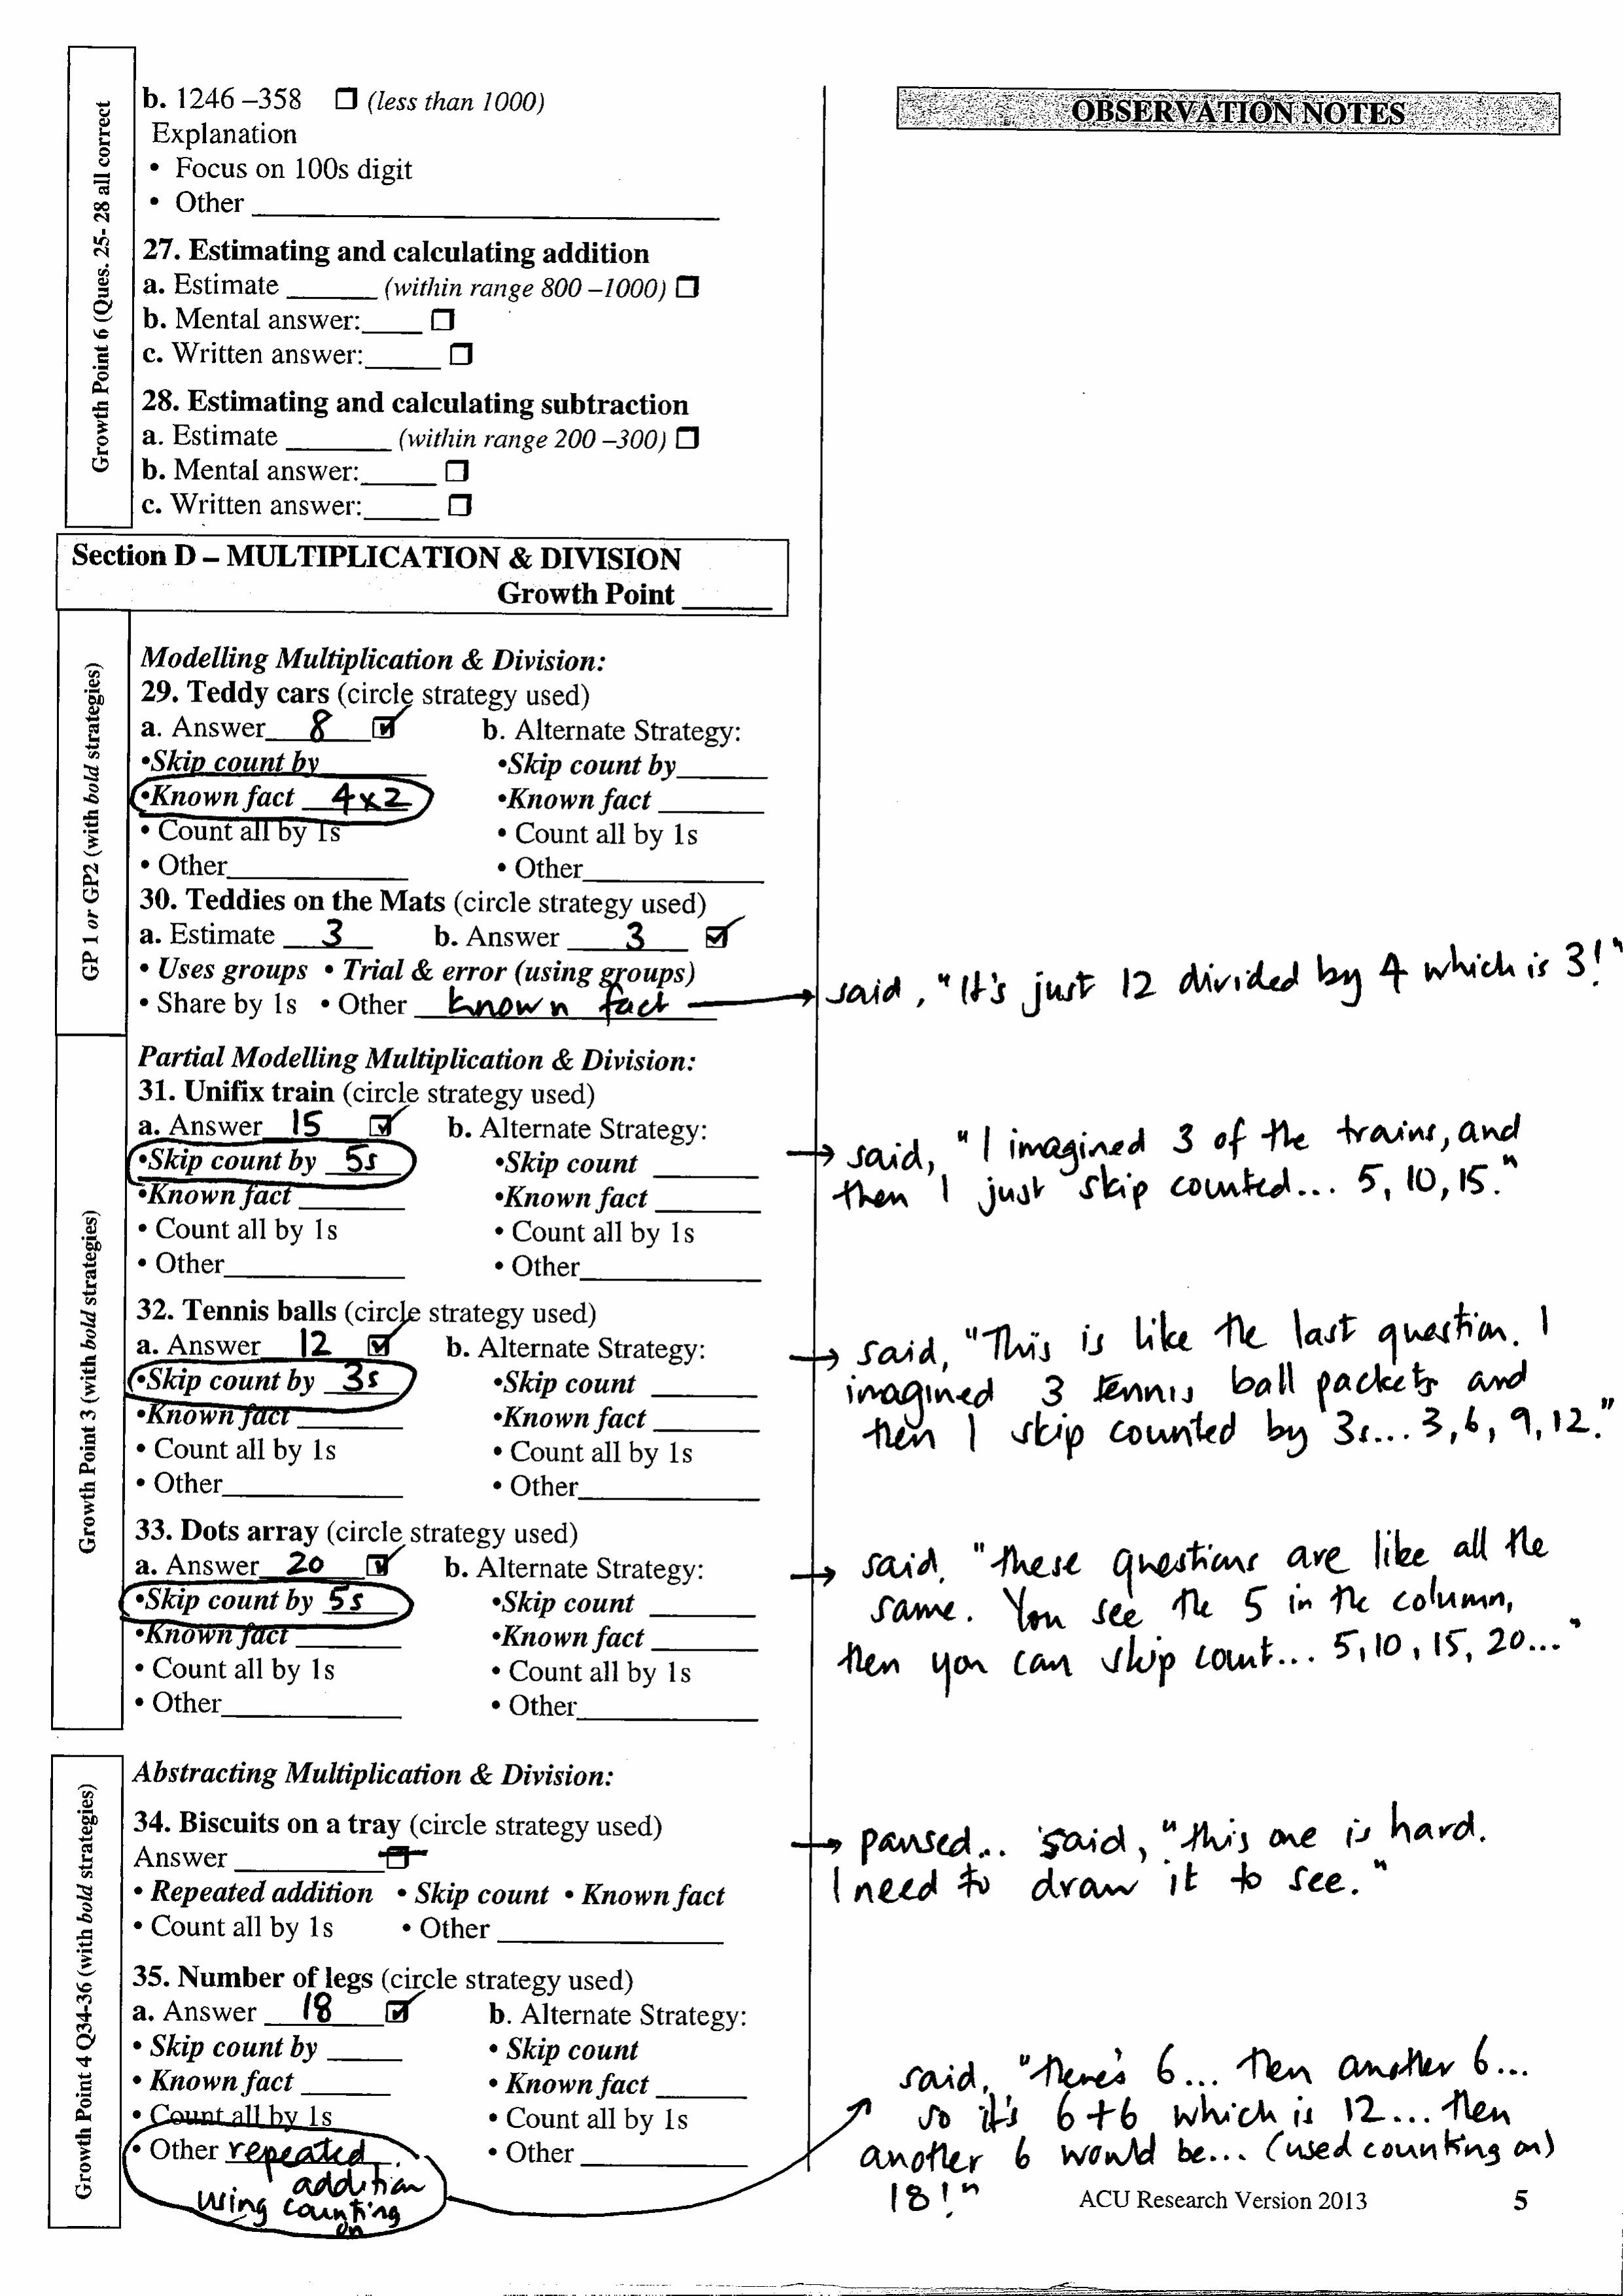 Growth Point 6 (Ques. 25- 28 all correct
b. 1246 –358 (less than 1000)
Explanation
• Focus on 100s digit
• Other
27. Estimating and calculating addition
a. Estimate (within range 800 –1000)
b. Mental answer:
c. Written answer:
28. Estimating and calculating subtraction
a. Estimate (within range 200 –300)
b. Mental answer:
c. Written answer:
OBSERVATION NOTES
Section D – MULTIPLICATION & DIVISION
Growth Point
GP 1 or GP2 (with bold strategies)
Modelling Multiplication & Division:
29. Teddy cars (circle strategy used)
a. Answer 8 b. Alternate Strategy:
•Skip count by •Skip count by
•Known fact 4x2 •Known fact
• Count all by 1s • Count all by 1s
• Other • Other
30. Teddies on the Mats (circle strategy used)
a. Estimate 3 b. Answer 3
• Uses groups • Trial & error (using groups)
• Share by 1s • Other known fact
said, "It's just 12 divided by 4 which is 3!"
Growth Point 3 (with bold strategies)
Partial Modelling Multiplication & Division:
31. Unifix train (circle strategy used)
a. Answer 15 b. Alternate Strategy:
•Skip count by 5s •Skip count
•Known fact •Known fact
• Count all by 1s • Count all by 1s
• Other • Other
said, "I imagined 3 of the trains, and
then I just skip counted... 5, 10, 15."
32. Tennis balls (circle strategy used)
a. Answer 12 b. Alternate Strategy:
•Skip count by 3s •Skip count
•Known fact •Known fact
• Count all by 1s • Count all by 1s
• Other • Other
said, "This is like the last question. I
imagined 3 tennis ball packets and
then I skip counted by 3s... 3, 6, 9, 12."
33. Dots array (circle strategy used)
a. Answer 20 b. Alternate Strategy:
•Skip count by 5s •Skip count
•Known fact •Known fact
• Count all by 1s • Count all by 1s
• Other • Other
said, "these questions are like all the
same. You see the 5 in the column,
then you can skip count... 5, 10, 15, 20..."
Growth Point 4 Q34-36 (with bold strategies)
Abstracting Multiplication & Division:
34. Biscuits on a tray (circle strategy used)
Answer
• Repeated addition • Skip count • Known fact
• Count all by 1s • Other
paused... said, "this one is hard.
I need to draw it to see."
35. Number of legs (circle strategy used)
a. Answer 18 b. Alternate Strategy:
• Skip count by • Skip count
• Known fact • Known fact
• Count all by 1s • Count all by 1s
• Other repeated • Other
addition
using counting
on
said, "there's 6... then another 6...
so it's 6+6 which is 12... then
another 6 would be... (used counting on)
18!"
ACU Research Version 2013 5